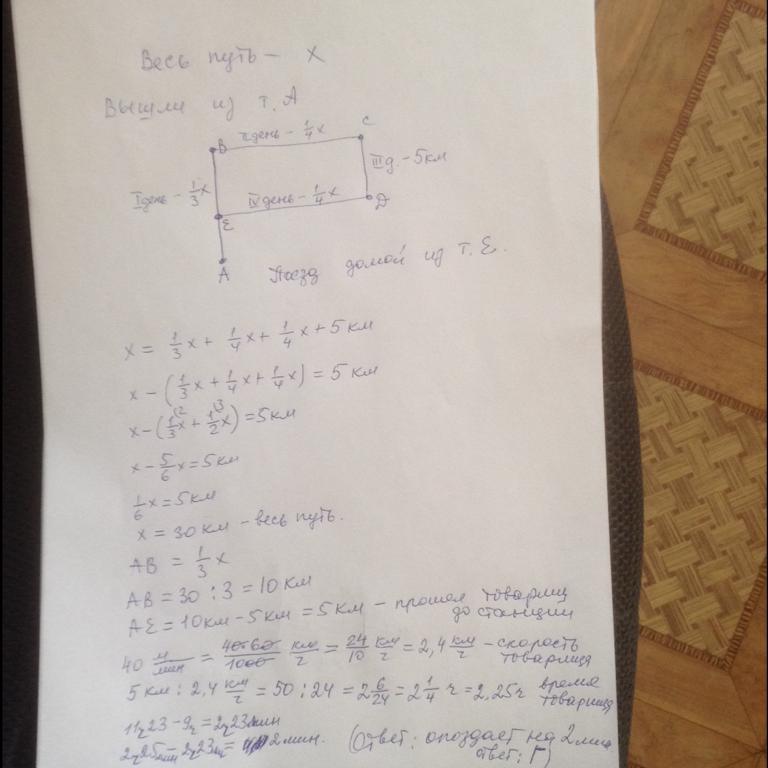 Весь путь – x
Вышли из т. А
II день – 1/4 x
B
C
I день – 1/3 x
III д. – 5 км
IV день – 1/4 x
E
D
A
Поезд домой из т. E.
x = 1/3 x + 1/4 x + 1/4 x + 5 км
x – (1/3 x + 1/4 x + 1/4 x) = 5 км
x – (1/3 x + 1/2 x) = 5 км
x – 5/6 x = 5 км
1/6 x = 5 км
x = 30 км – весь путь.
AB = 1/3 x
AB = 30 : 3 = 10 км
AE = 10 км – 5 км = 5 км – прошел товарищ до станции
40 м/мин = 40·60/1000 км/ч = 24/10 км/ч = 2,4 км/ч – скорость товарища
5 км : 2,4 км/ч = 50 : 24 = 2 6/24 = 2 1/4 ч = 2,25 ч время товарища
11ч 23 – 9ч = 2ч 23мин
2ч 25мин – 2ч 23м = 2 мин. (Ответ: опоздает на 2 мин
ответ: Г)